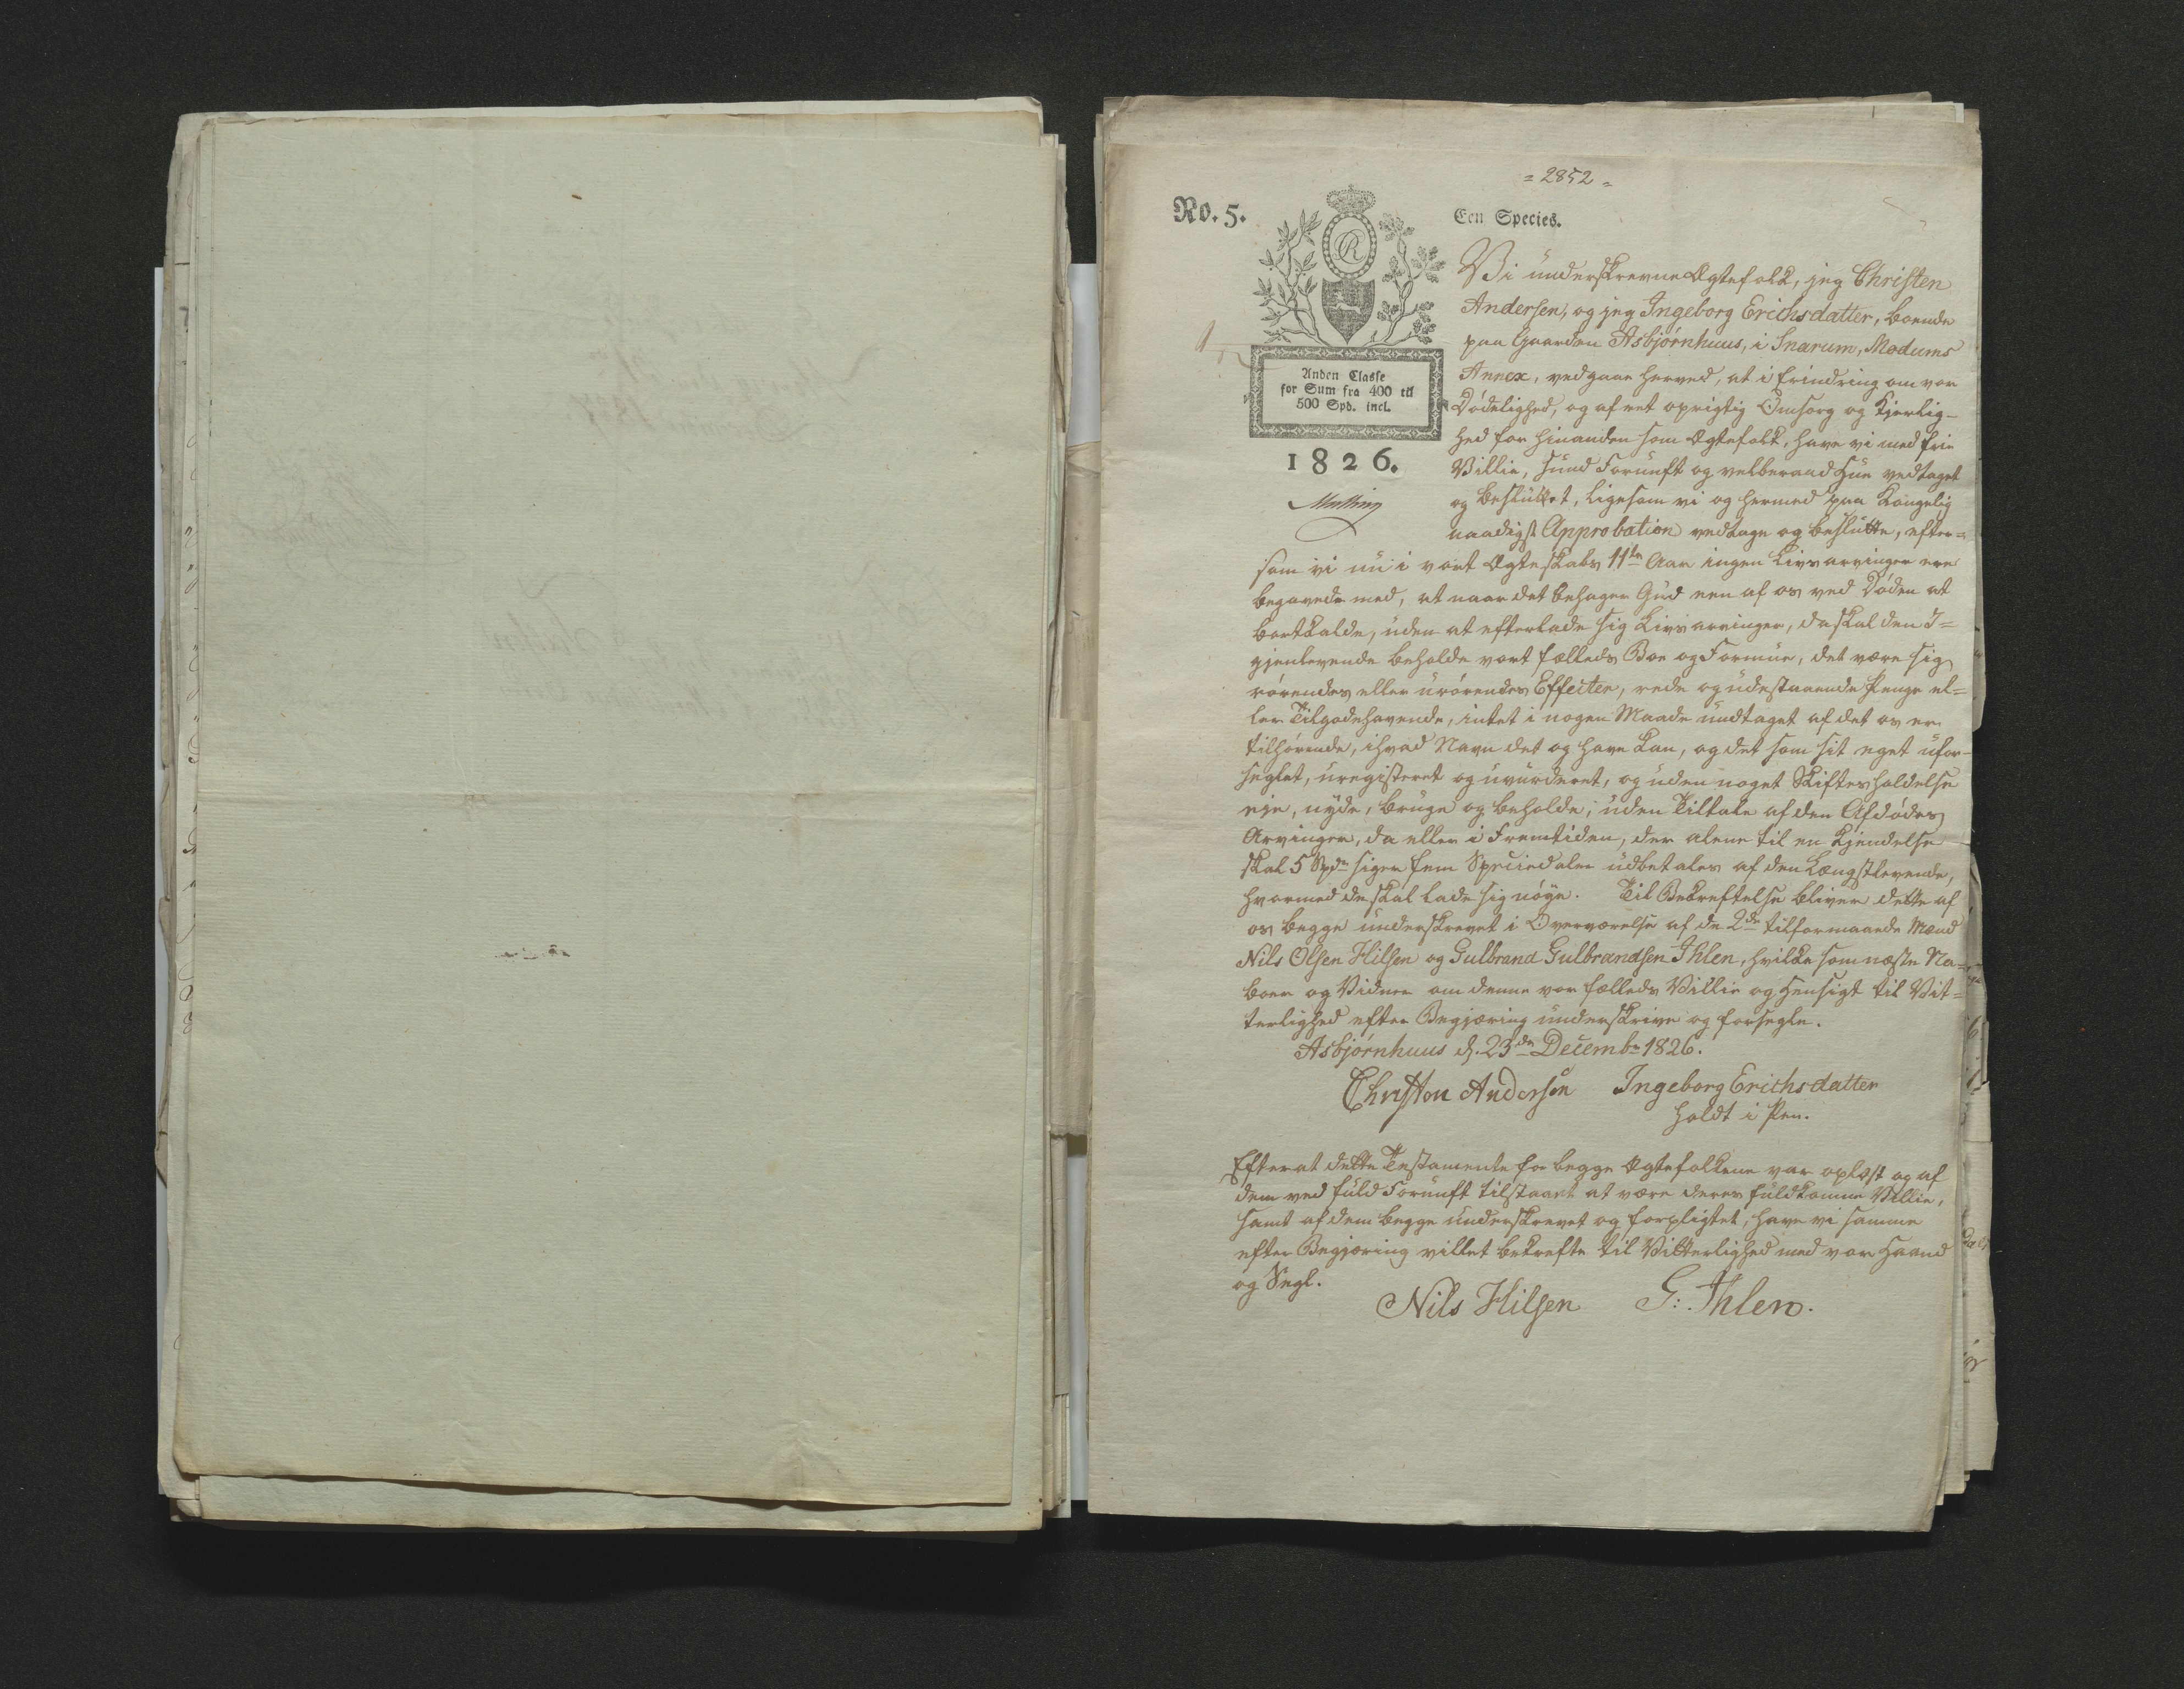 = 2852 =
No. 5.
Een Species.
Anden Classe
for Sum fra 400 til
500 Spd. incl.
1826.
Vi underskrevne Ægtefolk, jeg Christen
Andersen, og jeg Ingeborg Erichsdatter, boende
paa Gaarden Asbjørnhuus, i Snarum, Modums
Annex, vedgaae herved, at i Erindring om vor
Dødelighed, og af ret oprigtig Omsorg og Kjerlig-
hed for hinanden som Ægtefolk, have vi med frie
Villie, sund Fornuft og velberaad Hue vedtaget
og besluttet, ligesom vi og hermed paa Kongelig
naadigst Approbation vedtage og beslutte, efter=
som vi nu i vort Ægteskabs 11te Aar ingen Livsarvinger ere
begavede med, at naar det behager Gud een af os ved Døden at
bortkalde, uden at efterlade sig Livsarvinger, da skal den I=
gjenlevende beholde vort fælleds Boe og Formue, det være sig
rørendes eller urørendes Effecter, rede og udestaaende Penge el=
ler Tilgodehavende, intet i nogen Maade undtaget af det os er
tilhørende, ihvad Navn det og have kan, og det som sit eget ufor-
seglet, uregisteret og uvurderet, og uden noget Skiftesholdelse
eje, nyde, bruge og beholde, uden Tiltale af den Afdødes
Arvinger, da eller i Fremtiden, der alene til en Kjendelse
skal 5 Spdr siger fem Speciedaler udbetales af den Længstlevende,
hvormed de skal lade sig nøye. Til Bekræftelse bliver dette af
os begge underskrevet i Overværelse af de 2de tilformaaede Mænd
Nils Olsen Hilsen og Gulbrand Gulbrandsen Ihlen, hvilke som næste Na=
boer og Vidner om denne vor fælleds Villie og Hensigt til Vit=
terlighed efter Begjæring underskrive og forsegle.
Asbjørnhuus d. 23de Decembr 1826.
Christen Andersen Ingeborg Erichsdatter
holdt i Pen.
Efterat dette Testamente for begge Ægtefolkene var oplæst og af
dem ved fuld Fornuft tilstaaet at være deres fuldkomne Villie,
samt af dem begge underskrevet og forpligtet, have vi samme
efter Begjæring villet bekræfte til Vitterlighed med vor Haand
og Segl.
Nils Hilsen G: Ihlen.